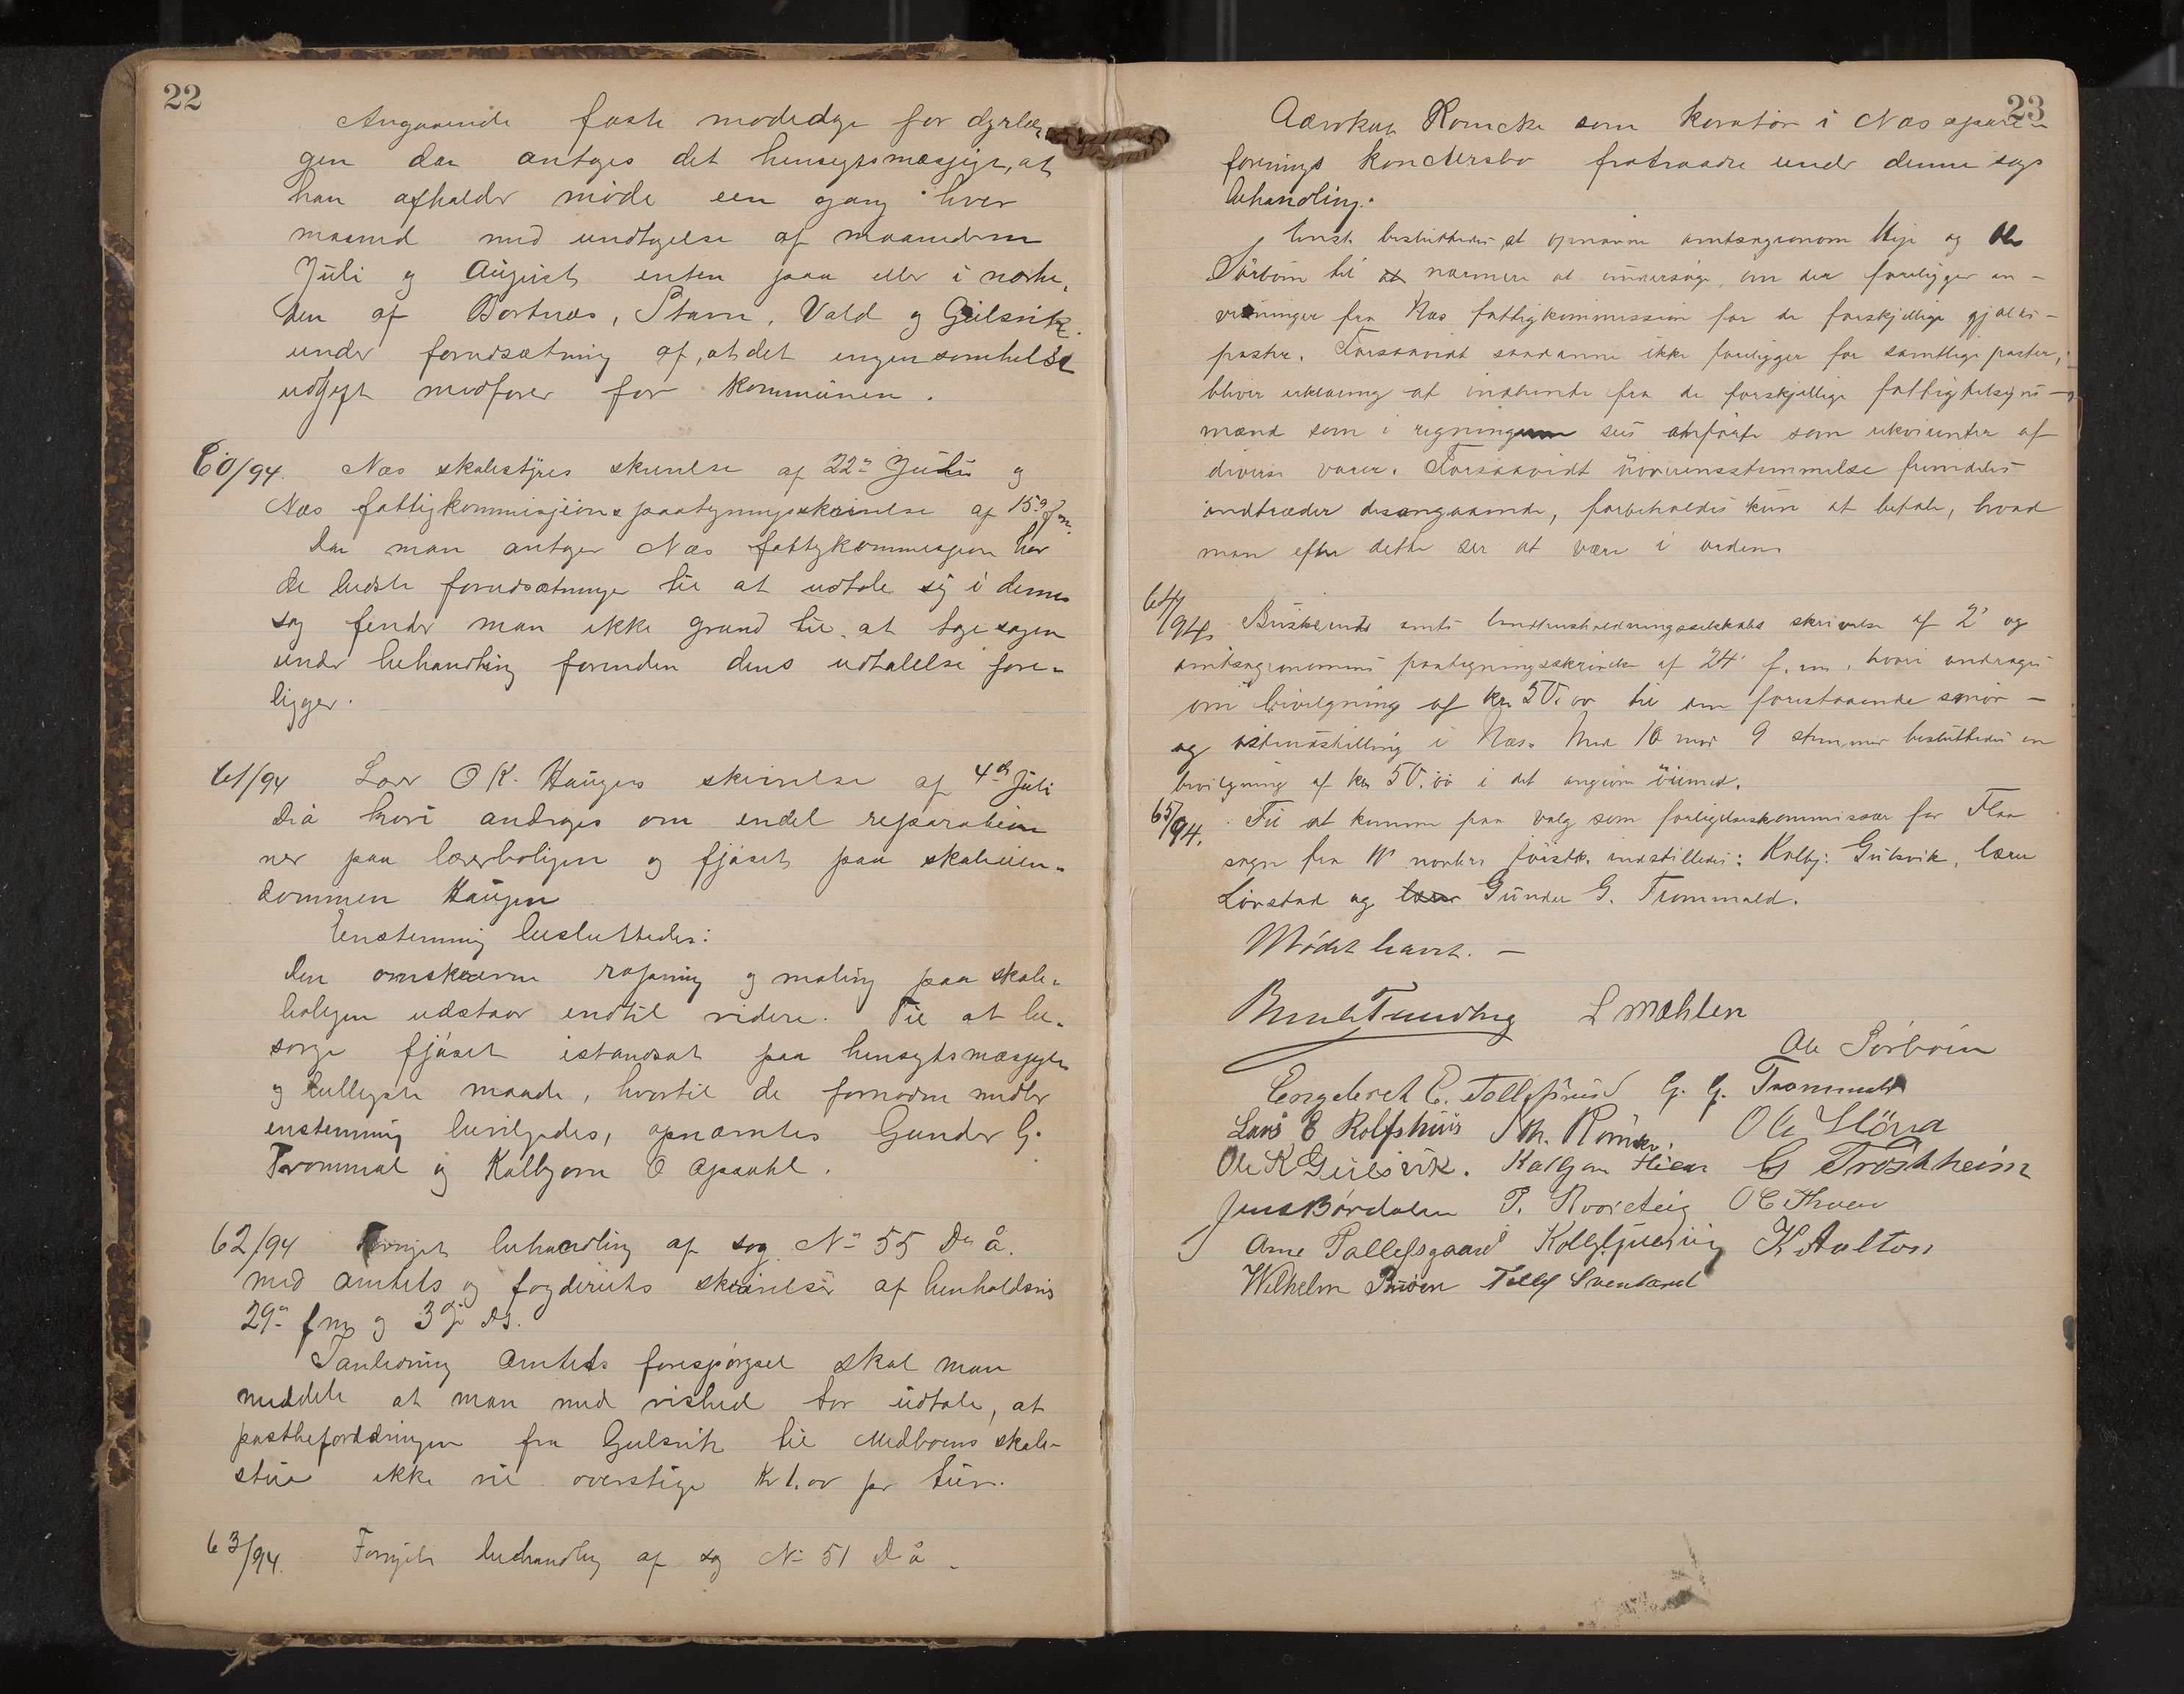 22
Angaaende faste mødedage for dyrlæ-
gen da antages det hensigtsmæssigt, at
han afholder møde een gang hver
maaned med undtagelse af maanederne
Juli og August enten paa eller i nærhe-
den af Bortnæs, Stavn, Vald og Gulsvik
under forudsætning af, at det ingensomhelst
udgift medfører for kommunen.
60/94. Næs skolestyres skrivelse af 22de Juli og
Næs fattigkommissions paategningsskrivelse af 15de f.m.
Da man antager Næs fattigkommission har
de bedste forudsætninge til at udtale sig i denne
sag finder man ikke grund til at tage sagen
under behandling forinden dens udtalelse fore-
ligger.
61/94 Lærer O K. Haugens skrivelse af 4de Juli
d å hvori andrages om endel reparatio
ner paa lærerboligen og fjøset paa skoleien-
dommen Haugen
Enstemmig besluttedes:
Den omskrevne rapning og maling paa skole-
boligen udstaar indtil videre. Til at be-
sørge fjøset istandsat paa hensigtsmæssigste
og billigste maade, hvortil de fornødne midler
enstemmig bevilgedes, opnævntes Gunder G.
Trommal og Kolbjørn O Opaahl.
62/94 Fornyet behandling af sag No 55 Ds å.
med amtets og fogderiets skrivelser af henholdsvis
29de f m og 3die ds.
I anledning amtets forespørgsel skal man
meddele at man med vished tør udtale, at
postbefordringen fra Gulsvik til Medboens skole-
stue ikke vil overstige Kr 1.00 pr tur.
63/94. Fornyet behandling af sag No 51 d å.
23
Aarskog Romcke som kurator i Næs spare-
forenings konkursbo fratraadte under denne sags
behandling.
Enst. besluttedes at opnævne amtsagronom Hije og Ole
Sørbøen til at nærmere at undersøge, om der foreligger an-
visninger fra Næs fattigkommission for de forskjellige gjælds-
poster. Forsaavidt saadanne ikke foreligger for samtlige poster,
bliver erklæring at indhente fra de forskjellige fattigtilsyns-
mænd som i regningerne sees anførte som rekvirenter af
diverse varer. Forsaavidt overensstemmelse fremdeles
indtræder desangaaende, forbeholdes kun at betale, hvad
man efter dette ser at være i orden.
64/94. Buskeruds amts landhusholdningsselskabs skrivelse af 2' og
amtsagronomens paategningsskrivelse af 24' f. m., hvori andrages
om bevilgning af kr. 50.00 til en forestaaende smør-
og osteudstilling i Næs. Med 10 mod 9 stemmer besluttedes en
bevilgning af kr 50.00 i det angivne øiemed.
65/94. Til at komme paa valg som forligelseskommissær for Flaa
sogn fra 1' novbr. førstk. indstilledes: Kolbj. Gulsvik, lærer
Lørstad og lærer Gunder G. Trommald.
Mødet hævet. —
L Mæhlen
Ole Sørbøen
Engebret E. Tollefsrud G. G. Trommald
Lars E Rolfshus Joh. Romcke. Ole Støva
Ole K Gulsvik. Kolbjørn Hiem G Trøstheim
Jens Børdalen P. Kvisteig O E Thoen
Arne Pallesgaard K Aalton
Wilhelm Bruøen Tollef Svenbæred